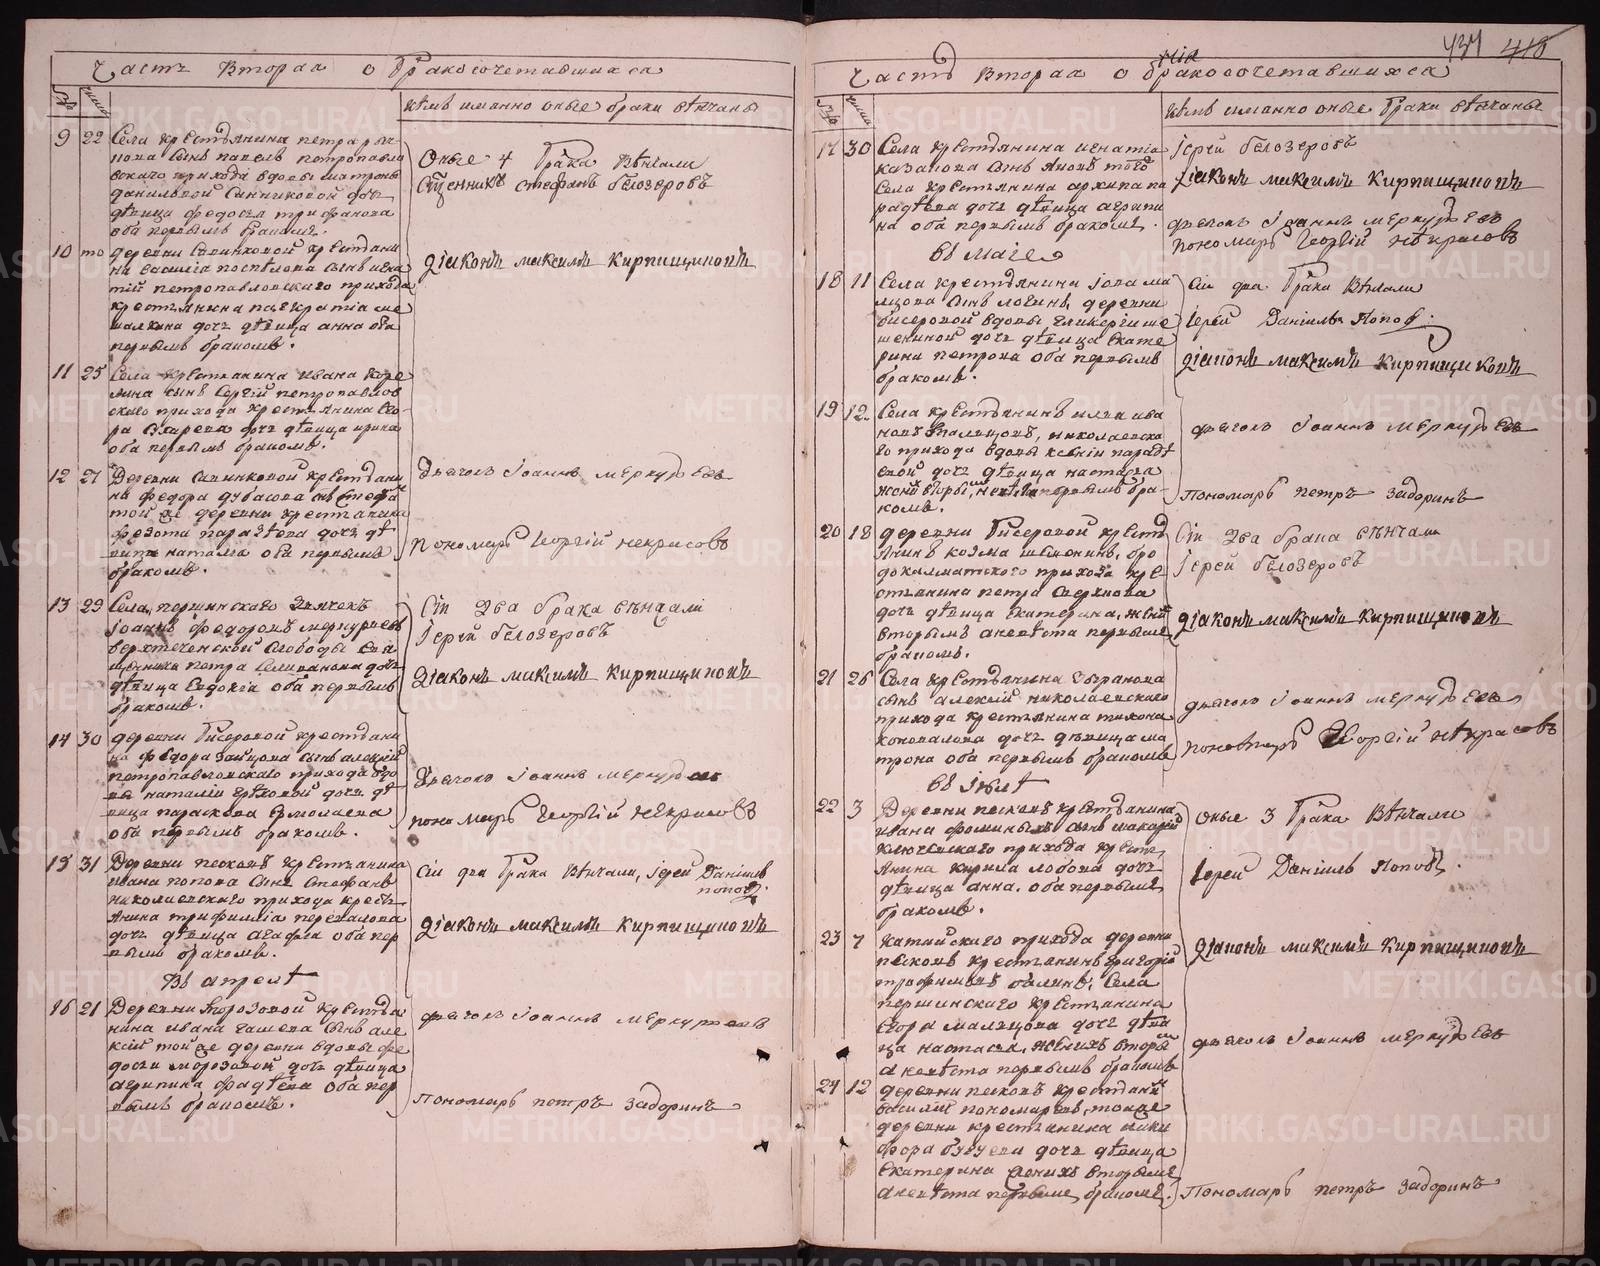 Часть Вторая о Бракосочетавшихся
кѣмъ имянно оные браки вѣнчаны
9 22 Села крестьянина петра
сынъ павелъ петропавлов
скаго прихода вдовы матроны
даниловой Санниковой дочь
дѣвица федосья трифанова
оба первымъ бракомъ.
Оные 4 брака вѣнчали
Сщенникъ стефанъ Белозеровъ
10 то деревни крестьяни
на василія поспѣлова сынъ игна
тій петропавловскаго прихода
крестьянина панкратія ме
шалкина дочь дѣвица анна оба
первымъ бракомъ.
діаконъ максимъ Кирпищиковъ
11 25 Села крестьянина ивана
сынъ Сергій петропавлов
скаго прихода крестьянина его
ра дочь дѣвица ирина
оба первымъ бракомъ.
12 27 Деревни крестьяни
на федора дубасова сынъ стефанъ
той же деревни крестьянина
федота дочь дѣ
вица наталья оба первымъ
бракомъ.
Дьячокъ Іоаннъ меркурьевъ
Пономарь Георгій некрасовъ
13 29 Села першинскаго дьячекъ
іоаннъ федоровъ меркурьевъ
верхтеченской слободы свя
щенника петра дочь
дѣвица Евдокія оба первымъ
бракомъ.
Сіи два брака вѣнчали
Іерей Белозеровъ
діаконъ максимъ Кирпищиковъ
14 30 деревни Бисеровой крестьяни
на федора сынъ алексѣй
петропавловскаго прихода вдо
вы наталіи дочь дѣ
вица параскева Ермолаева
оба первымъ бракомъ.
Дьячокъ іоаннъ меркурьевъ
пономарь Георгій некрасовъ
15 31 Деревни песковъ крестьянина
ивана попова сынъ стефанъ
николаевскаго прихода кресть
янина трифилія
дочь дѣвица агафья оба пер
вымъ бракомъ.
Сіи два брака вѣнчали, іерей Даніилъ
поповъ.
діаконъ максимъ Кирпищиковъ
Въ апрелѣ
16 21 Деревни Морозовой крестья
нина ивана сынъ але
ксій той же деревни вдовы фе
досьи морозовой дочь дѣвица
агрипина оба пер
вымъ бракомъ.
дьячокъ іоаннъ меркурьевъ
Пономарь петръ задоринъ
437 418
Часть вторая о бракосочетавшихся
кѣмъ имянно оные браки вѣнчаны
17 30 Села крестьянина игнатія
казанова сынъ яковъ того
села крестьянина архипа
дочь дѣвица агрипи
на оба первымъ бракомъ.
іерей Белозеровъ
діаконъ максимъ Кирпищиковъ
дьячокъ Іоаннъ меркурьевъ
пономарь Георгій некрасовъ
въ маіе
18 11 Села крестьянина іова ма
льцова сынъ логинъ, деревни
бисеровой вдовы гликеріи ше
дочь дѣвица екате
рина петрова оба первымъ
бракомъ.
Сіи два брака вѣнчали
Іерей Даніилъ Поповъ.
діаконъ максимъ Кирпищиковъ
19 12 Села крестьянинъ илья ива
новъ николаевска
го прихода вдовы ксеніи
дочь дѣвица настасья
женихъ вторымъ, невѣста первымъ бра-
комъ.
дьячокъ Іоаннъ меркурьевъ
пономарь петръ задоринъ
20 18 деревни Бисеровой кресть
янинъ козма бро
докалматскаго прихода кре
стьянина петра
дочь дѣвица екатерина, женихъ
вторымъ а невѣста первымъ
бракомъ.
Сіи два брака вѣнчали
Іерей Белозеровъ
діаконъ максимъ Кирпищиковъ
21 26 Села крестьянина
сынъ алексій николаевскаго
прихода крестьянина тихона
коновалова дочь дѣвица ма
трона оба первымъ бракомъ
дьячокъ Іоаннъ меркурьевъ
пономарь Георгій некрасовъ
въ іюлѣ
22 3 Деревни песковъ крестьянина
ивана фоминыхъ сынъ макарій
ключевскаго прихода кресть
янина кирила лобова дочь
дѣвица анна. оба первымъ
бракомъ.
Оные 3 брака вѣнчали
іерей Даніилъ Поповъ.
23 7 катайскаго прихода деревни
песковъ крестьянинъ григорій
трофимовъ села
першинскаго крестьянина
егора мальцова дочь дѣви
ца настасья, женихъ вторымъ
а невѣста первымъ бракомъ
діаконъ максимъ Кирпищиковъ
дьячокъ Іоаннъ меркурьевъ
24 12 деревни песковъ крестьянинъ
василій пономаревъ, тояже
деревни крестьянина ники
фора дочь дѣвица
екатерина женихъ вторымъ
а невѣста первымъ бракомъ.
Пономарь петръ задоринъ
METRIKI.GASO-URAL.RU